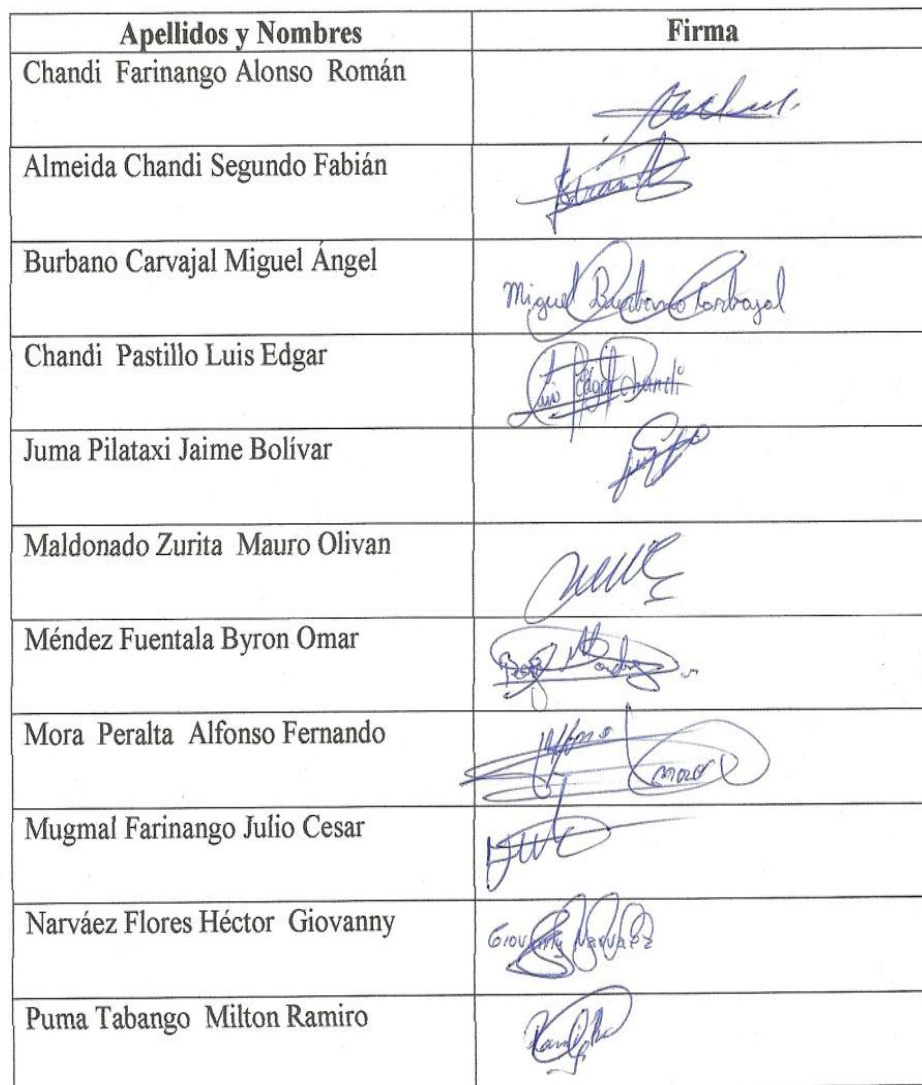 Apellidos y Nombres Firma
Chandi Farinango Alonso Román
Almeida Chandi Segundo Fabián
Burbano Carvajal Miguel Ángel
Miguel Burbano Carbajal
Chandi Pastillo Luis Edgar
Luis Edgar Chandi
Juma Pilataxi Jaime Bolívar
Maldonado Zurita Mauro Olivan
Méndez Fuentala Byron Omar
Mora Peralta Alfonso Fernando
Alfonso Mora
Mugmal Farinango Julio Cesar
Narváez Flores Héctor Giovanny
Giovanny Narváez
Puma Tabango Milton Ramiro